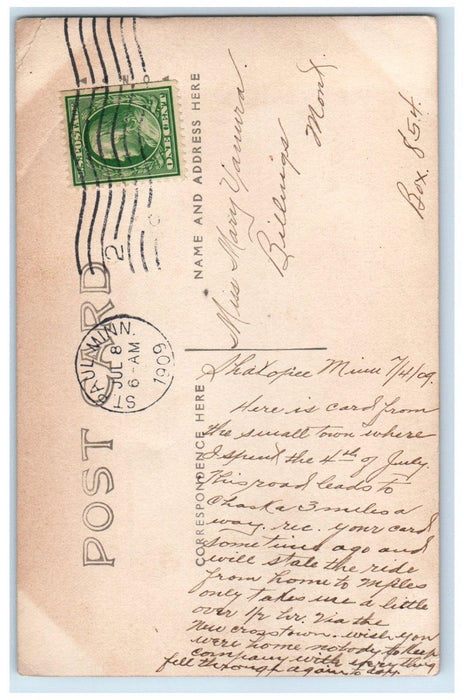 POST CARD
U.S. POSTAGE
ONE CENT
ST. PAUL, MINN.
JUL 8
6-AM
1909
2
NAME AND ADDRESS HERE
Miss Mary
Billings
Mont.
Box 854.
CORRESPONDENCE HERE
Shakopee Minn 7/4/09.
Here is card from
the small town where
I spend the 4th of July.
This road leads to
Chaska 3 miles a
way. rec. your card
sometime ago and
will state the ride
from home to Mples
only takes us a little
over 1/2 hr. via the
New crosstown. wish you
were home nobody to keep
company with everything
fell through again to day.